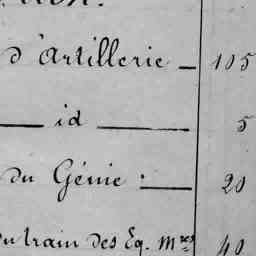 d'Artillerie — 105
— id — 5
du Génie : — 20
du train des Eq. Mres 40